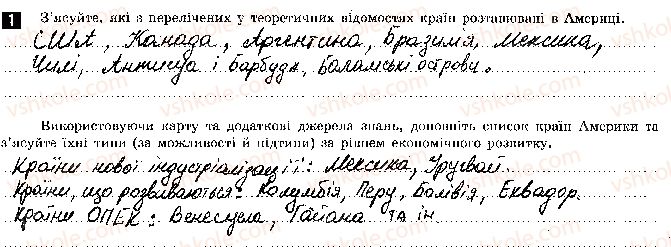 1 З'ясуйте, які з перелічених у теоретичних відомостях країн розташовані в Америці.
США, Канада, Аргентина, Бразилія, Мексика,
Чилі, Антигуа і Барбуда, Багамські острови.
Використовуючи карту та додаткові джерела знань, доповніть список країн Америки та
з'ясуйте їхні типи (за можливості й підтипи) за рівнем економічного розвитку.
Країни нової індустріалізації: Мексика, Уругвай.
Країни, що розвиваються: Колумбія, Перу, Болівія, Еквадор.
Країни ОПЕК: Венесуела, Гайана та ін.